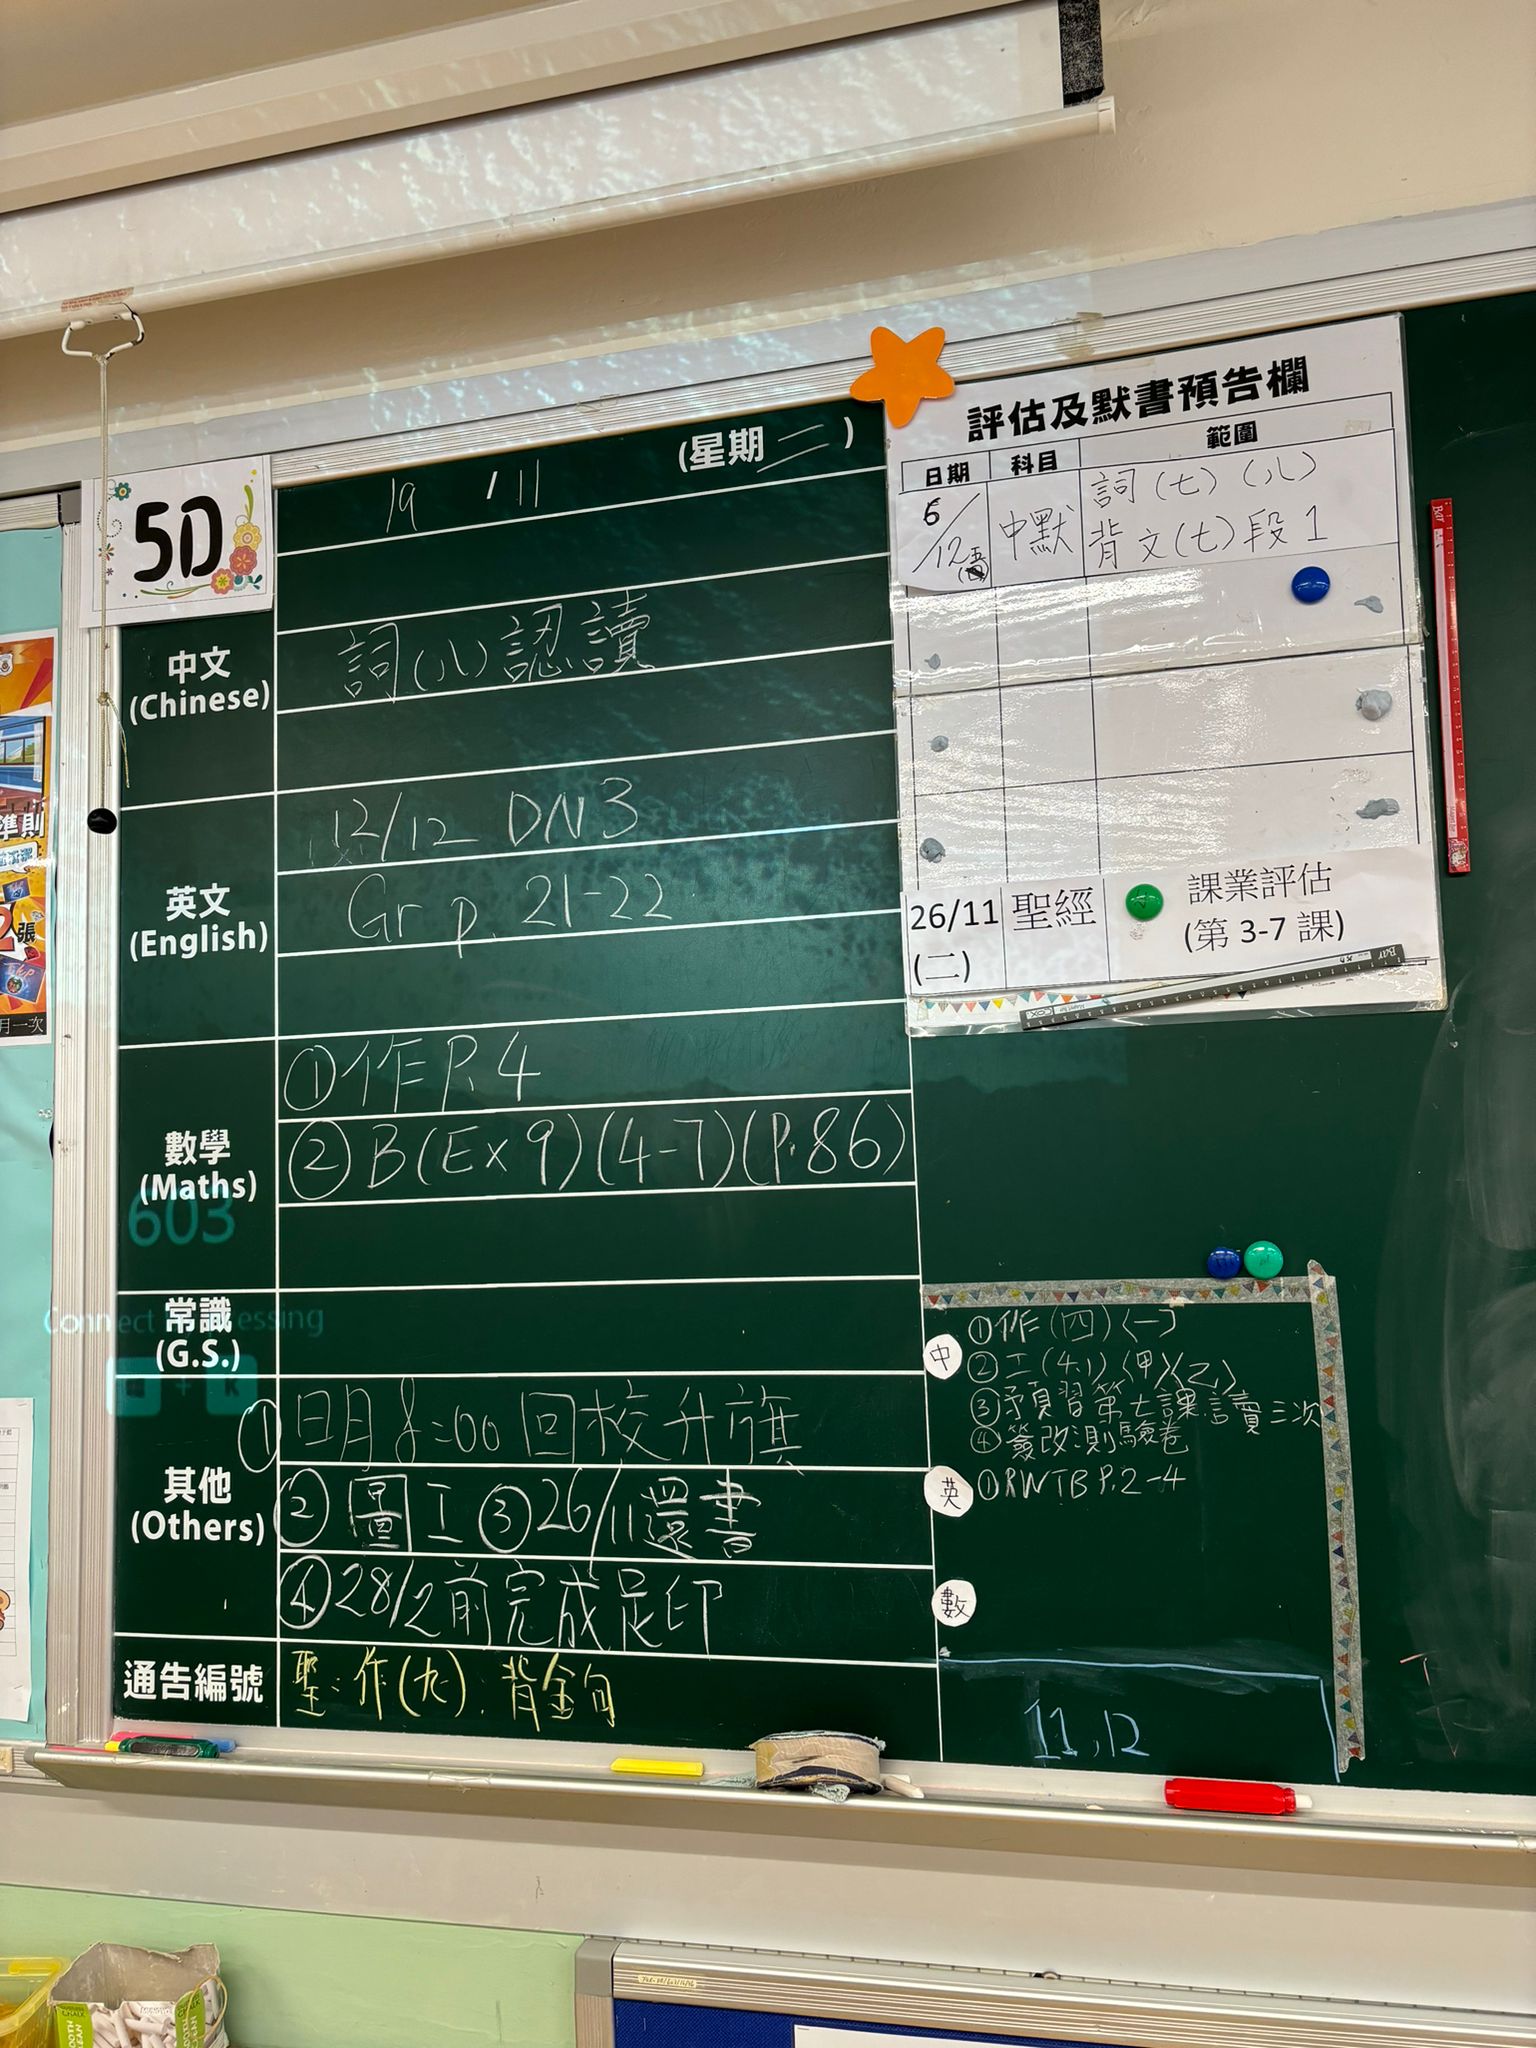 5D
19 / 11 (星期二)
中文
(Chinese)
詞(八)認讀
英文
(English)
12/12 DN3
Gr p. 21-22
數學
(Maths)
①作 P. 4
②B(Ex 9)(4-7)(P.86)
603
常識
(G.S.)
其他
(Others)
①明 8:00 回校升旗
②圖工 ③26/11還書
④28/2前完成足印
通告編號
聖:作(九). 背金句
評估及默書預告欄
日期 科目 範圍
6/12(五) 中默 詞(七)(八)
背文(七)段1
26/11
(二)
聖經
課業評估
(第 3-7 課)
中
①作(四)〈一〉
②工(4.1)〈甲〉〈乙〉
③預習第七課讀三次
④簽改測驗卷
英 ①RWTB P.2-4
數
11, 12
準則
張
月一次